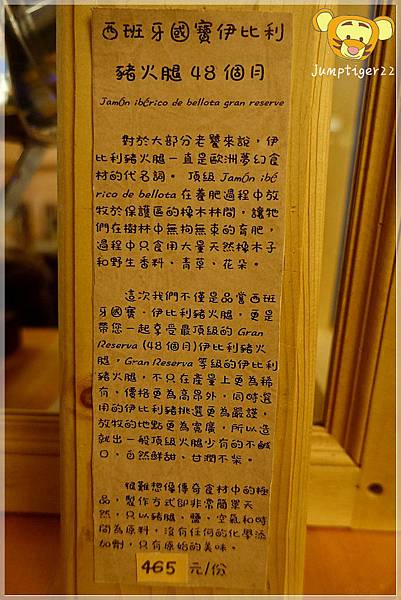 jumptiger22
西班牙國寶伊比利
豬火腿48個月
Jamón ibérico de bellota gran reserve
對於大部分老饕來說，伊
比利豬火腿一直是歐洲夢幻食
材的代名詞。頂級 Jamón ibé
rico de bellota 在養肥過程中放
牧於保護區的橡木林間，讓牠
們在樹林中無拘無束的育肥，
過程中只食用大量天然橡木子
和野生香料、青草、花朵。
這次我們不僅是品嘗西班
牙國寶．伊比利豬火腿，更是
帶您一起享受最頂級的 Gran
Reserva (48個月)伊比利豬火
腿，Gran Reserva 等級的伊比利
豬火腿，不只在產量上更為稀
有，價格更為高昂外，同時選
用的伊比利豬挑選更為嚴謹，
放牧的地點更為寬廣，所以造
就出一般頂級火腿少有的不鹹
口，自然鮮甜、甘潤不柴。
很難想像傳奇食材中的極
品，製作方式卻非常簡單天
然，只以豬腿、鹽、空氣和時
間為原料，沒有任何的化學添
加劑，只有原始的美味。
465 元/份